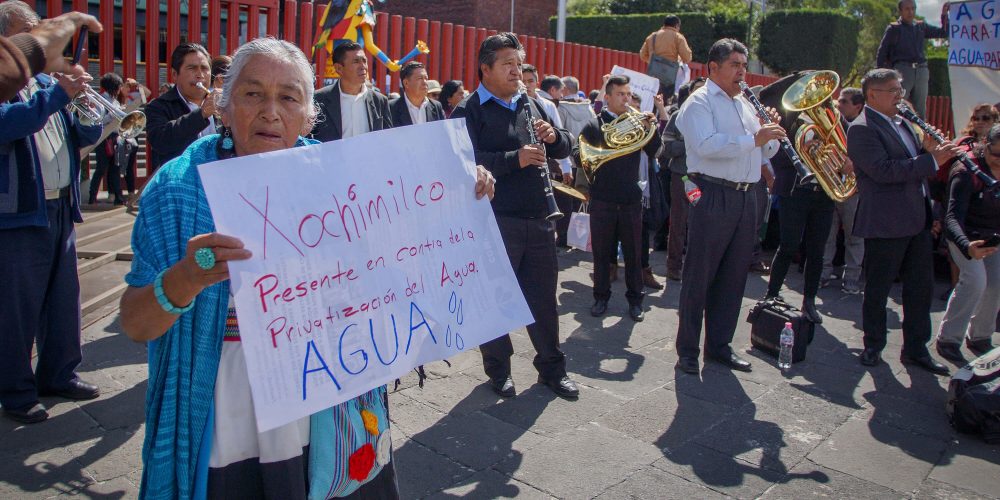 Xochimilco
Presente en contra de la
Privatización del Agua.
AGUA
AGUA
PARA T
AGUA PA